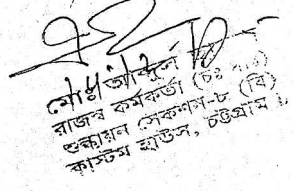 মোঃ আব্দুল
রাজস্ব কর্মকর্তা (চঃ দাঃ)
শুল্কায়ন সেকশন-৮ (বি)
কাস্টম হাউস, চট্টগ্রাম।